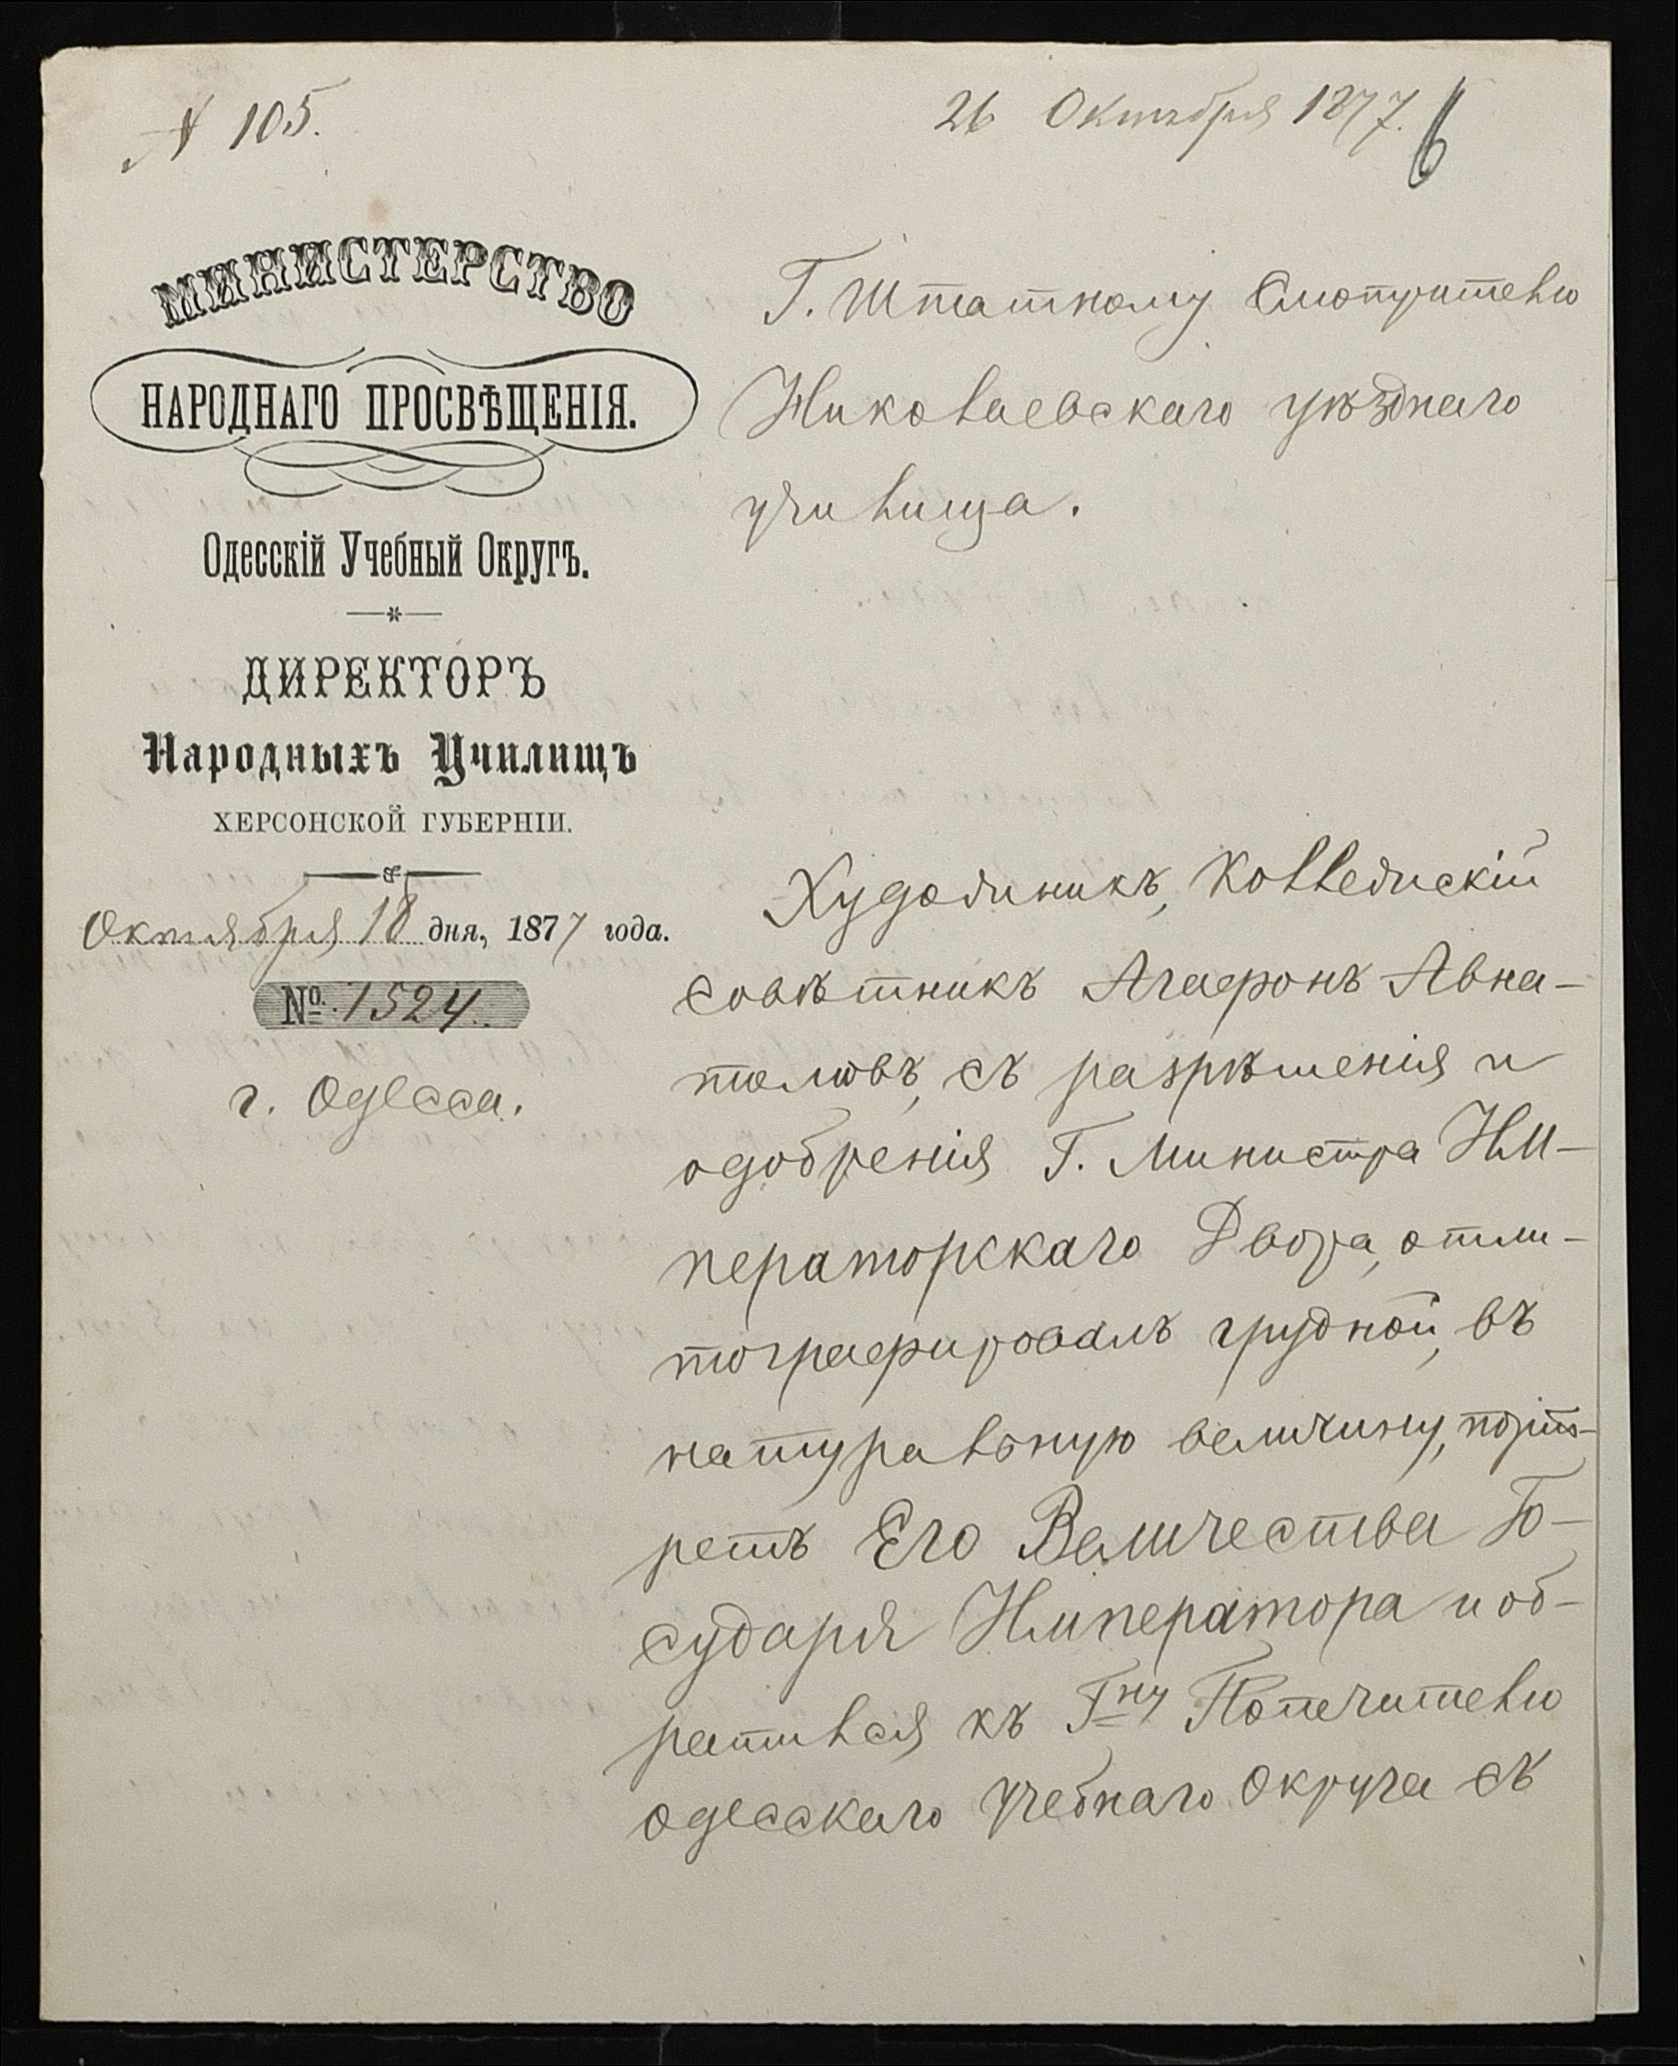 № 105.
26 Октября 1877.
6
МИНИСТЕРСТВО
НАРОДНАГО ПРОСВѢЩЕНІЯ.
Одесскій Учебный Округъ.
ДИРЕКТОРЪ
Народныхъ Училищъ
ХЕРСОНСКОЙ ГУБЕРНІИ.
Октября 18 дня, 1877 года.
№ 1524.
г. Одесса.
Г. Штатному Смотрителю
Николаевскаго уѣзднаго
училища.
Художникъ, Коллежскій
совѣтникъ Агафонъ Авна-
томовъ, съ разрѣшенія и
одобренія Г. Министра ИМ-
ператорскаго Двора, отли-
тографировалъ грудной, въ
натуральную величину, порт-
ретъ Его Величества Го-
сударя Императора и об-
ратился къ Гну Попечителю
Одесскаго Учебнаго Округа съ